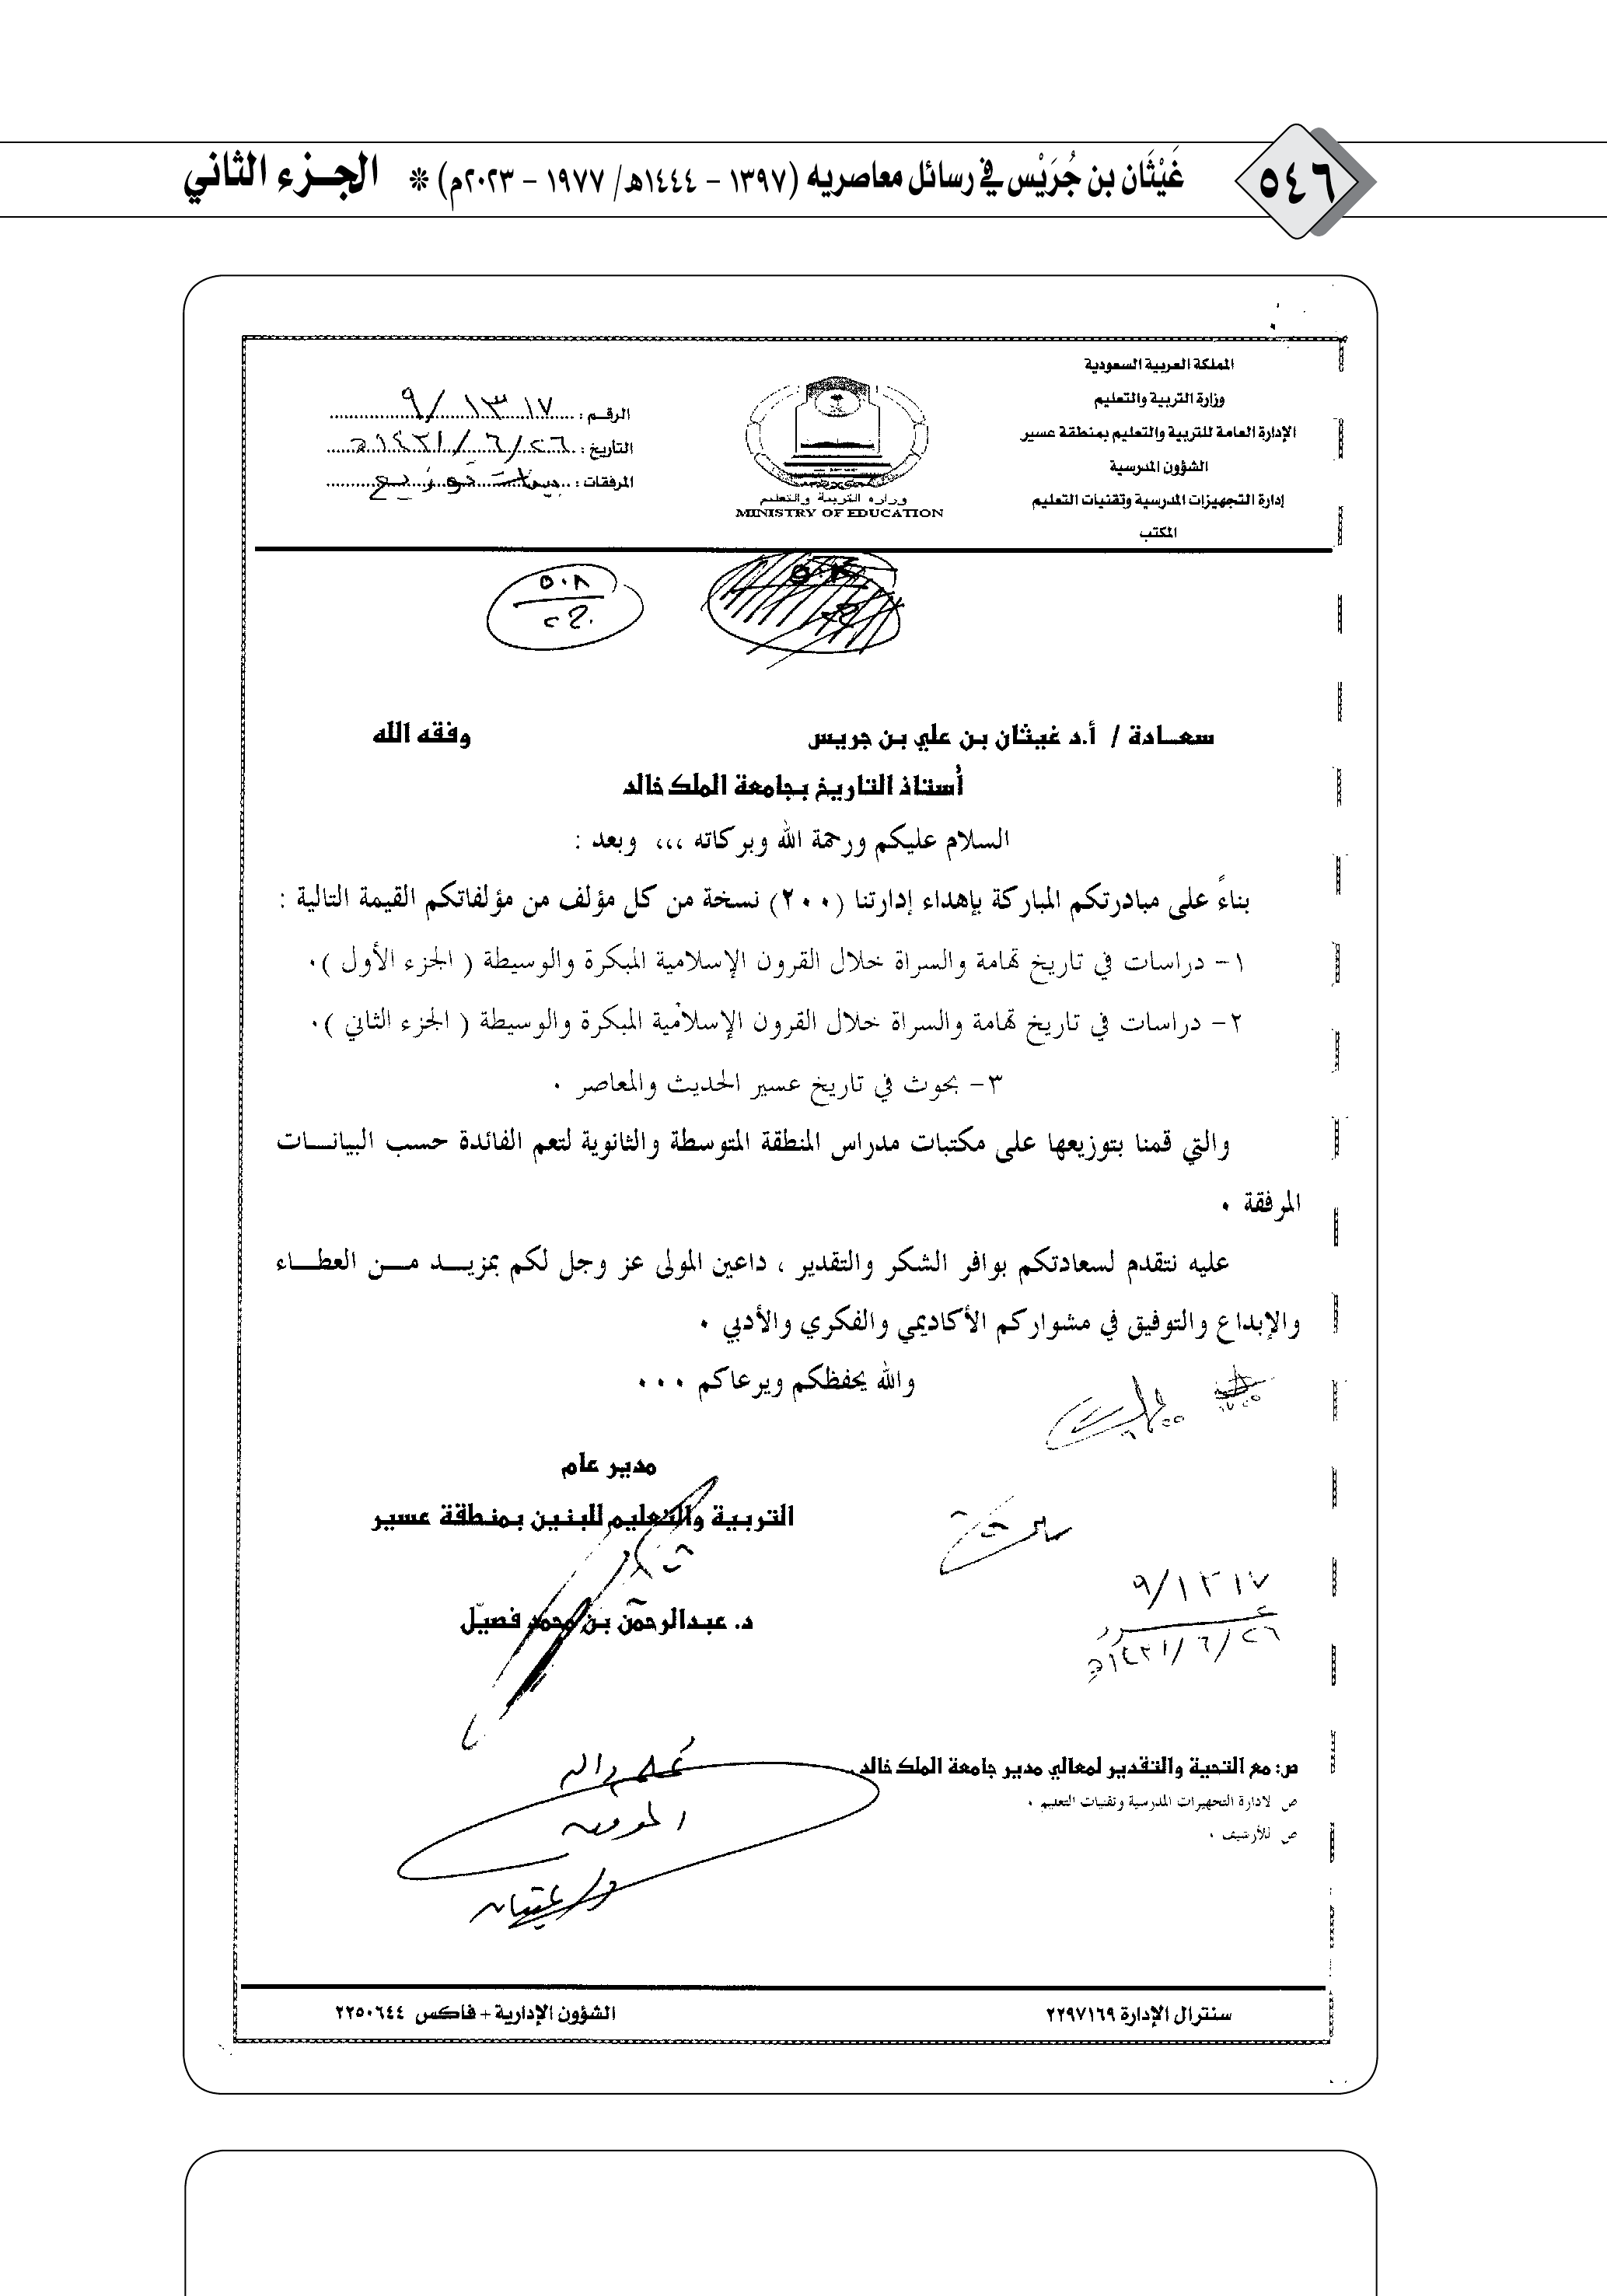 ٥٤٦
غَيْثَان بن جُرَيْس في رسائل معاصريه (١٣٩٧ - ١٤٤٤هـ/ ١٩٧٧ - ٢٠٢٣م) * الجزء الثاني
المملكة العربية السعودية
وزارة التربية والتعليم
الإدارة العامة للتربية والتعليم بمنطقة عسير
الشؤون المدرسية
إدارة التجهيزات المدرسية وتقنيات التعليم
المكتب
وزارة التربية والتعليم
MINISTRY OF EDUCATION
الرقم : ٩/١٣١٧
التاريخ : ١٤٣١/٦/٢٦هـ
المرفقات : بيانات توزيع
٥٠٨
سعـادة / أ.د غيثان بن علي بن جريس وفقه الله
أستاذ التاريخ بجامعة الملك خالد
السلام عليكم ورحمة الله وبركاته ،،، وبعد :
بناءً على مبادرتكم المباركة بإهداء إدارتنا (٢٠٠) نسخة من كل مؤلف من مؤلفاتكم القيمة التالية :
١- دراسات في تاريخ تهامة والسراة خلال القرون الإسلامية المبكرة والوسيطة ( الجزء الأول ).
٢- دراسات في تاريخ تهامة والسراة خلال القرون الإسلامية المبكرة والوسيطة ( الجزء الثاني ).
٣- بحوث في تاريخ عسير الحديث والمعاصر .
والتي قمنا بتوزيعها على مكتبات مدارس المنطقة المتوسطة والثانوية لتعم الفائدة حسب البيانـــات
المرفقة .
عليه نتقدم لسعادتكم بوافر الشكر والتقدير ، داعين المولى عز وجل لكم بمزيـــد مـــن العطـــاء
والإبداع والتوفيق في مشواركم الأكاديمي والفكري والأدبي .
والله يحفظكم ويرعاكم . . .
مدير عام
التربية والتعليم للبنين بمنطقة عسير
د. عبدالرحمن بن محمد فصيّل
٩/١٣١٧
١٤٣١/٦/٢٦هـ
ص: مع التحية والتقدير لمعالي مدير جامعة الملك خالد.
ص لادارة التجهيزات المدرسية وتقنيات التعليم .
ص للأرشيف .
سنترال الإدارة ٢٢٩٧١٦٩
الشؤون الإدارية + فاكس ٢٢٥٠٦٤٤